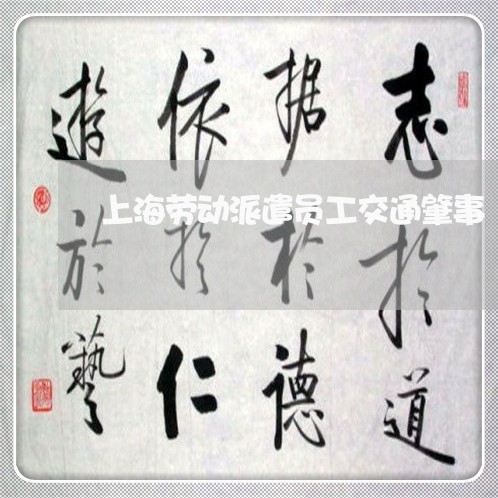 上海劳动派遣员工交通肇事
志於道
据於德
依於仁
遊於藝